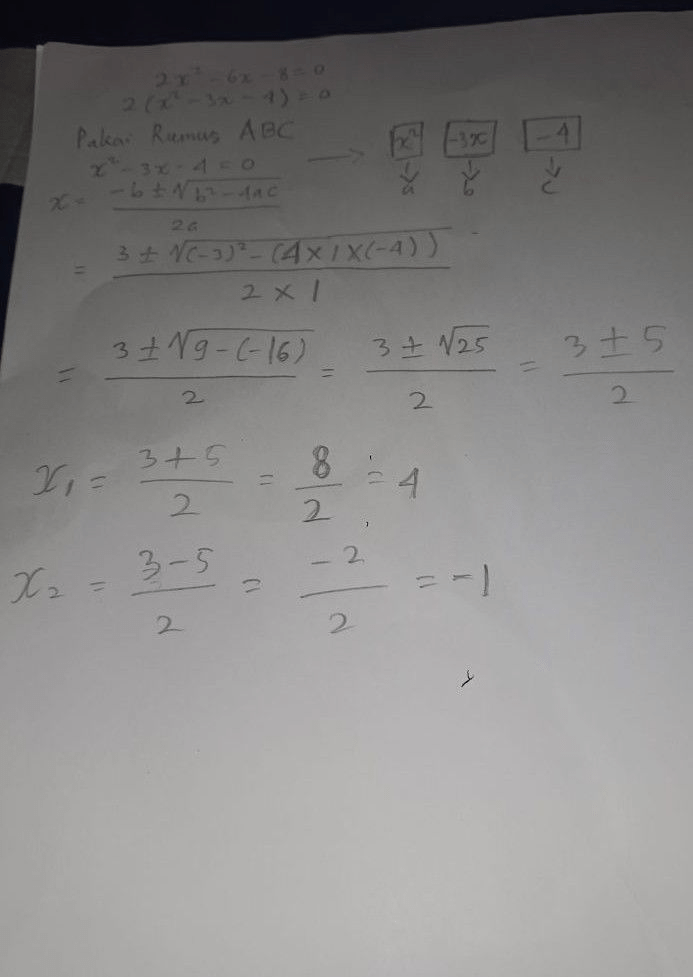 2x² - 6x - 8 = 0
2 (x² - 3x - 4) = 0
Pakai Rumus ABC
x² - 3x - 4 = 0 → x² -3x -4
↓ ↓ ↓
a b c
x = (-b ± √(b² - 4ac)) / 2a
= (3 ± √((-3)² - (4 × 1 × (-4)))) / (2 × 1)
= (3 ± √(9 - (-16))) / 2 = (3 ± √25) / 2 = (3 ± 5) / 2
x₁ = (3 + 5) / 2 = 8 / 2 = 4
x₂ = (3 - 5) / 2 = -2 / 2 = -1